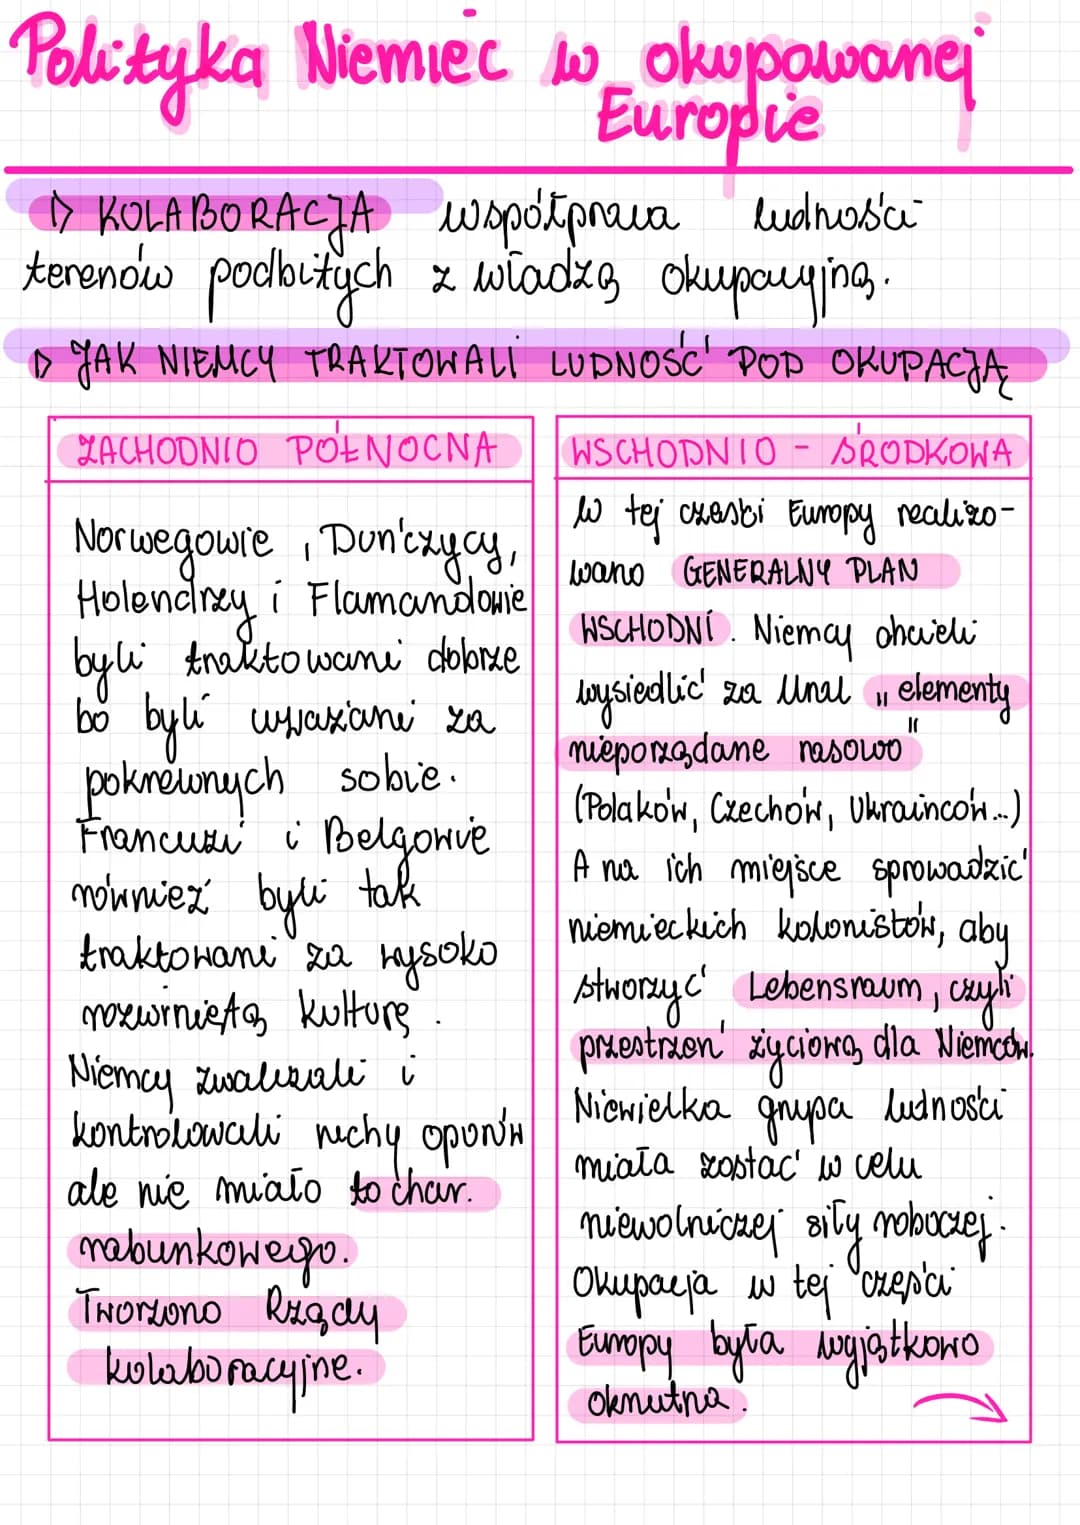 Polityka Niemiec w okupowanej
Europie
▷ KOLABORACJA współpraca ludności
terenów podbitych z władzą okupacyjną.
▷ JAK NIEMCY TRAKTOWALI LUDNOŚĆ POD OKUPACJĄ
ZACHODNIO PÓŁNOCNA
Norwegowie, Duńczycy,
Holendrzy i Flamandowie
byli traktowani dobrze
bo byli uważani za
pokrewnych sobie.
Francuzi i Belgowie
również byli tak
traktowani za wysoko
rozwiniętą kulturę.
Niemcy zwalczali i
kontrolowali ruchy oporów
ale nie miało to char.
rabunkowego.
Tworzono Rządy
kolaboracyjne.
WSCHODNIO - ŚRODKOWA
W tej cześci Europy realizo-
wano GENERALNY PLAN
WSCHODNI. Niemcy chcieli
wysiedlić za Ural „elementy
nieporządane rasowo"
(Polaków, Czechów, Ukraincow...)
A na ich miejsce sprowadzić
niemieckich kolonistów, aby
stworzyć Lebensraum, czyli
przestrzeń życiową dla Niemców.
Niewielka grupa ludności
miała zostać w celu
niewolniczej siły roboczej.
Okupacja w tej części
Europy była wyjątkowo
okrutna.